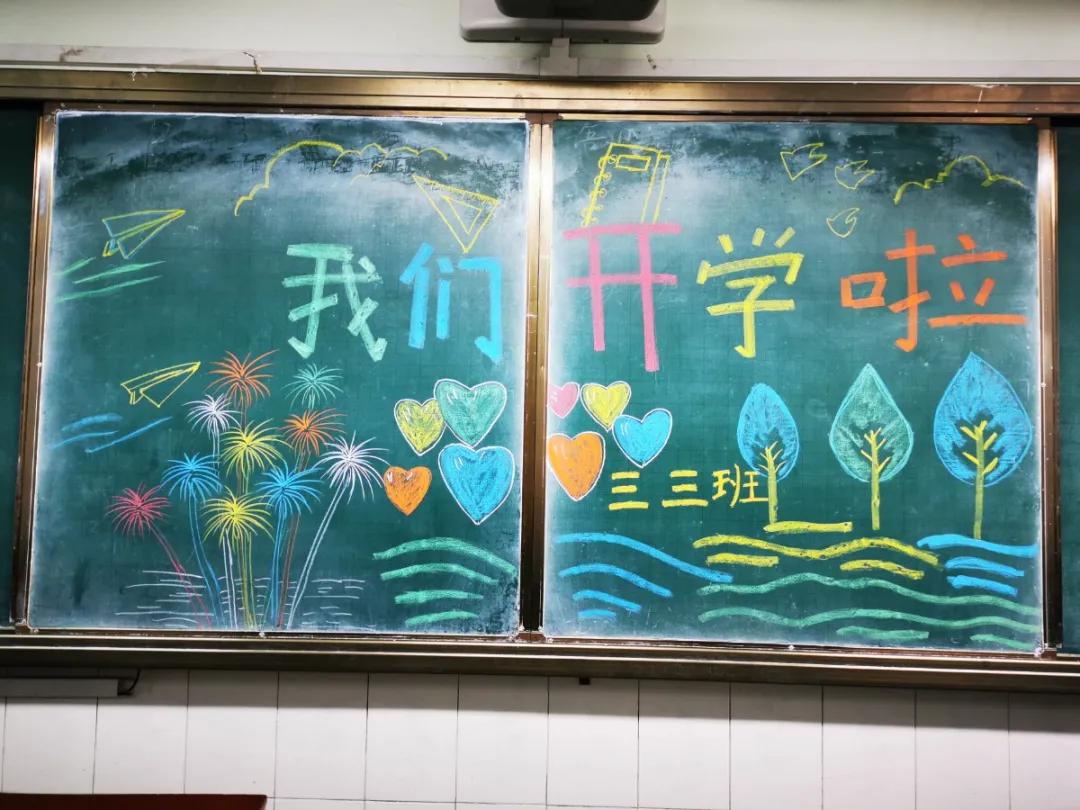 我们开学啦
三三班